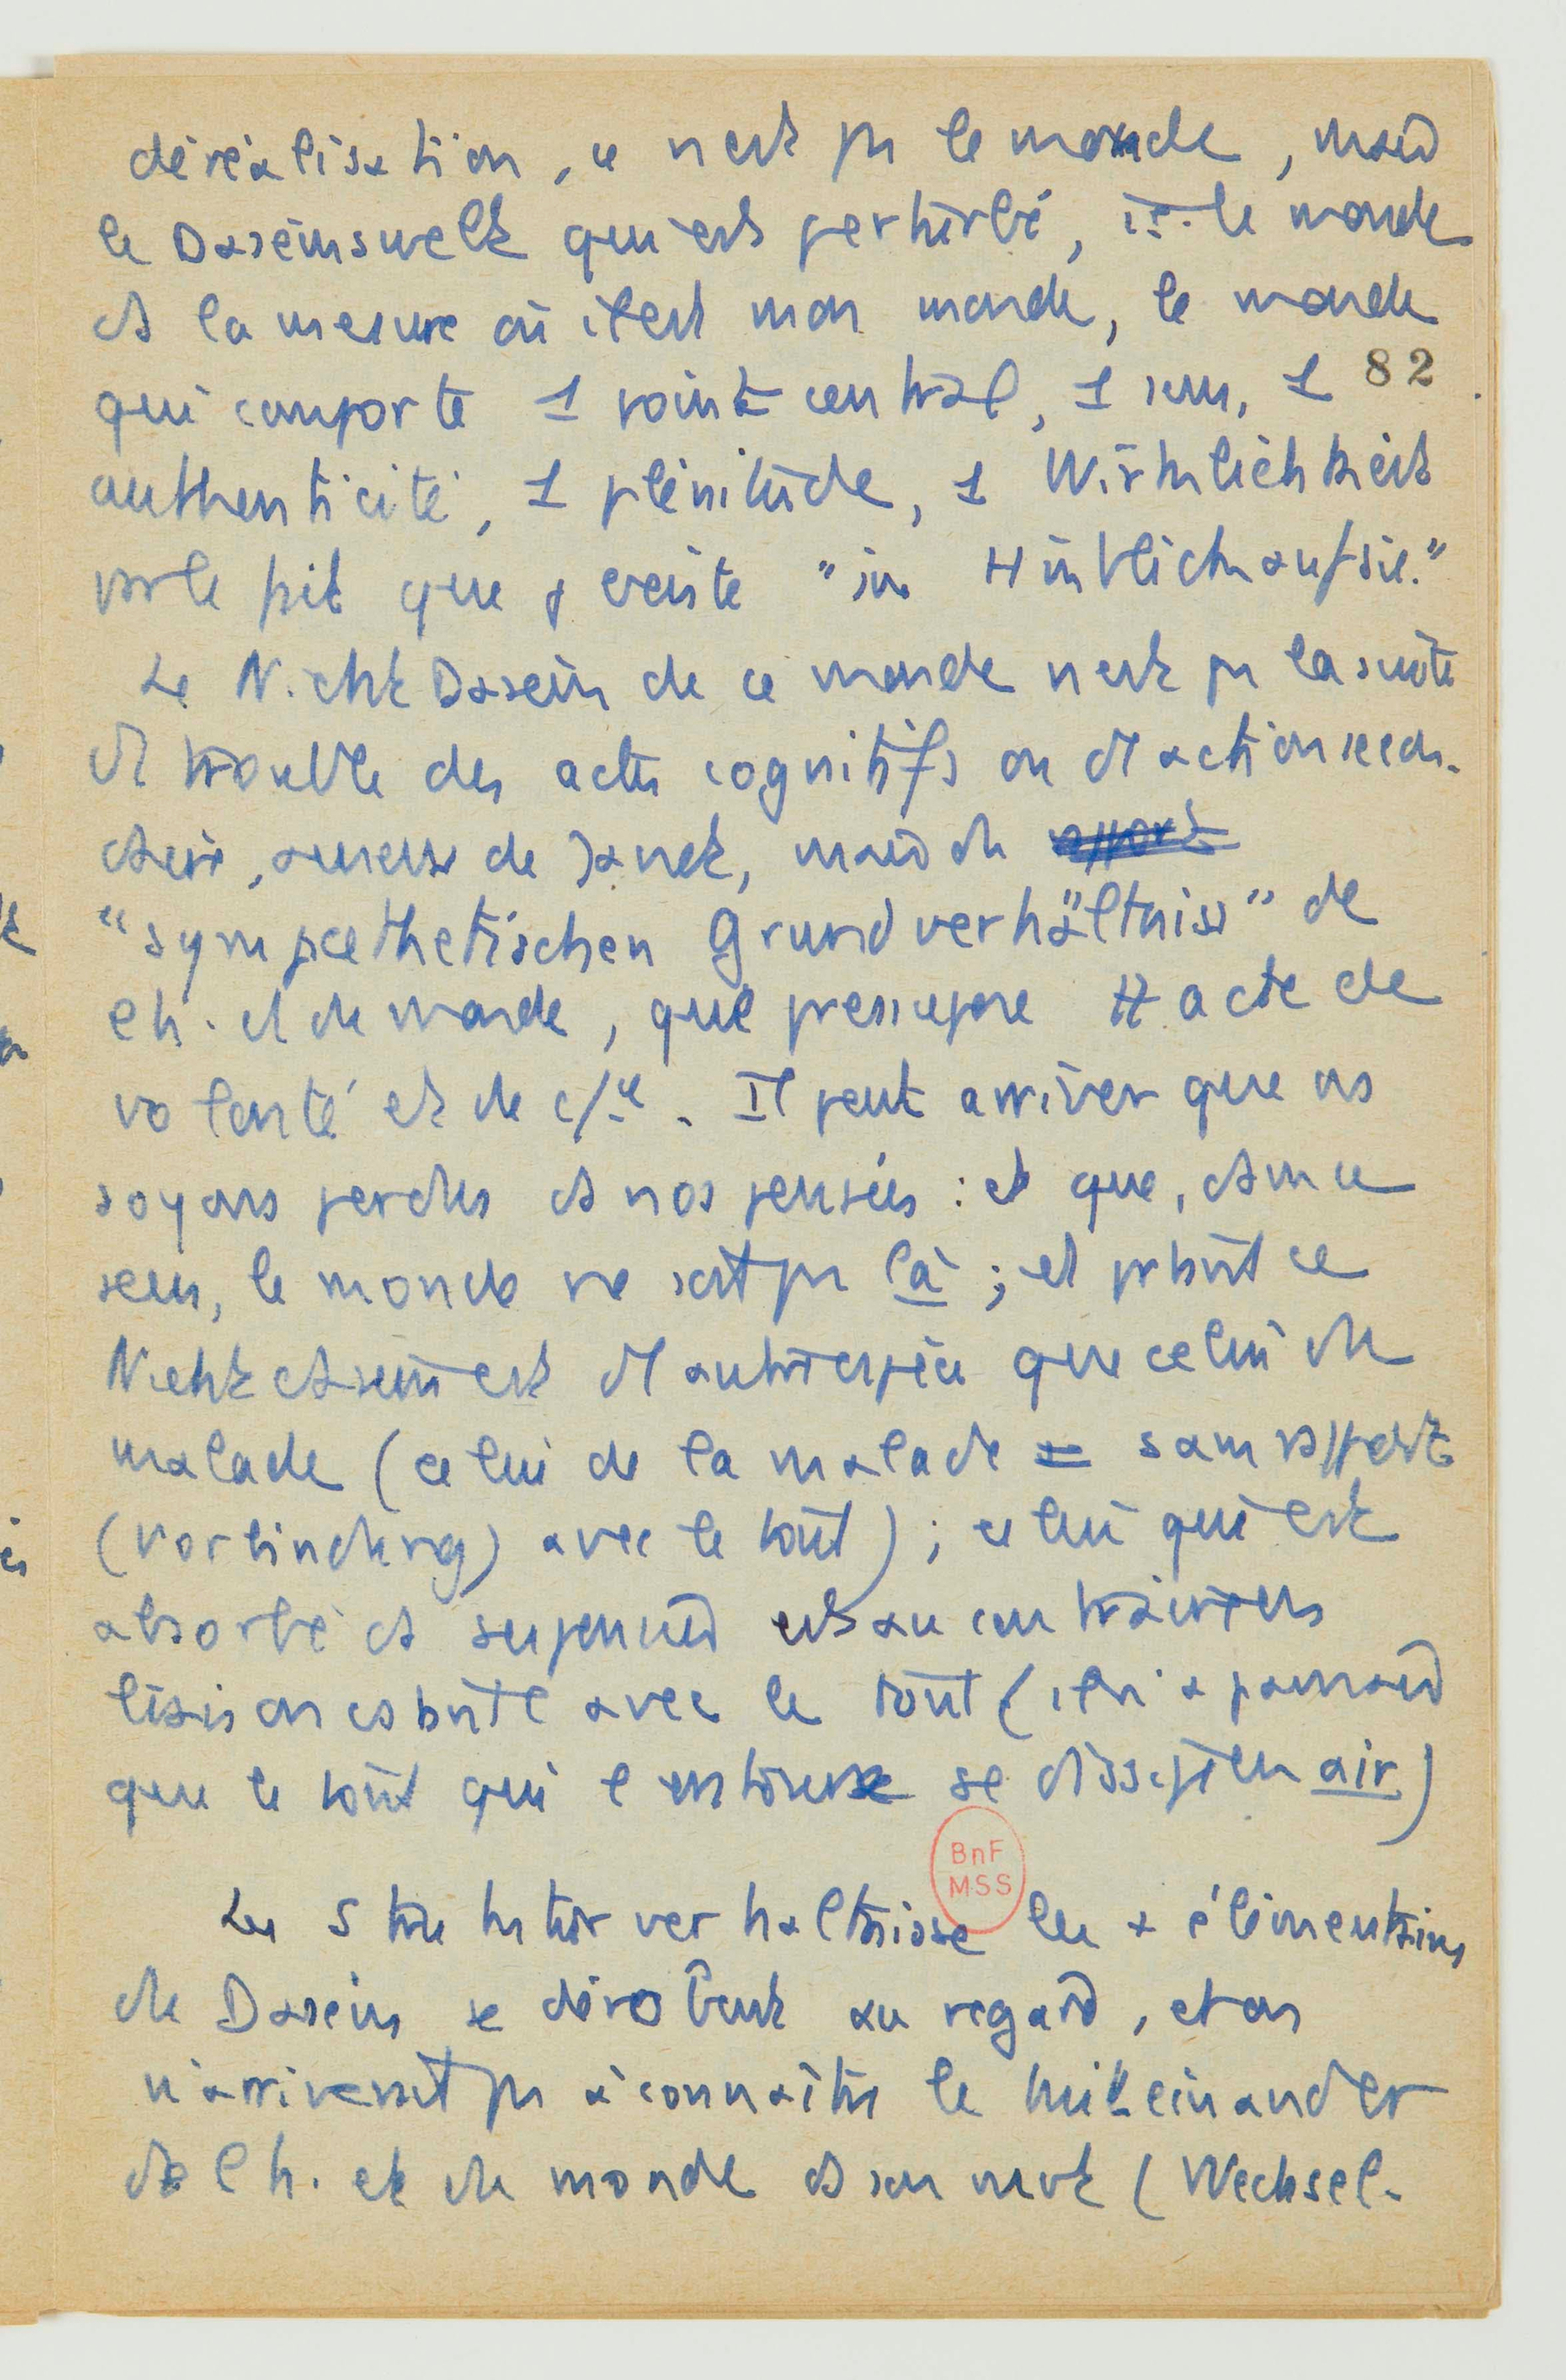 déréalisation, ce n'est ps le monde, mais
le Daseinswelt qui est perturbé, i.e. le monde
ds la mesure où il est mon monde, le monde
qui comporte 1 point central, 1 sens, 1
82
authenticité, 1 plénitude, 1 Wirklichkeit
par le fait que j' existe "in Hinblich auf sie."
Le Nicht Dasein de ce monde n'est ps la suite
d' trouble des actes cognitifs ou d' action secon-
daire, au sens de Janet, mais du
"sympaethetischen Grundverhältniss" de
l'h. et du monde, que présuppose tt acte de
volonté et de c/ce. Il peut arriver que ns
soyons perdus ds nos pensées : et que, ds ce
sens, le monde ne soit ps là ; et ptant ce
Nicht dasein est d' autre espèce que celui du
malade (celui de la malade = sans rapport
(Vorbindung) avec le tout) ; celui qui est
absorbé ds ses pensées est au contraire en
liaison absolue avec le tout (il n'a jamais
que le tout qui l'entoure se dissipe en air)
BnF
MSS
Les Strukturverhaltnisse les + élémentaires
du Dasein se dérobent au regard, et on
n'arriverait ps à connaître le Miteinander
de l'h. et du monde ds son unité (Wechsel-